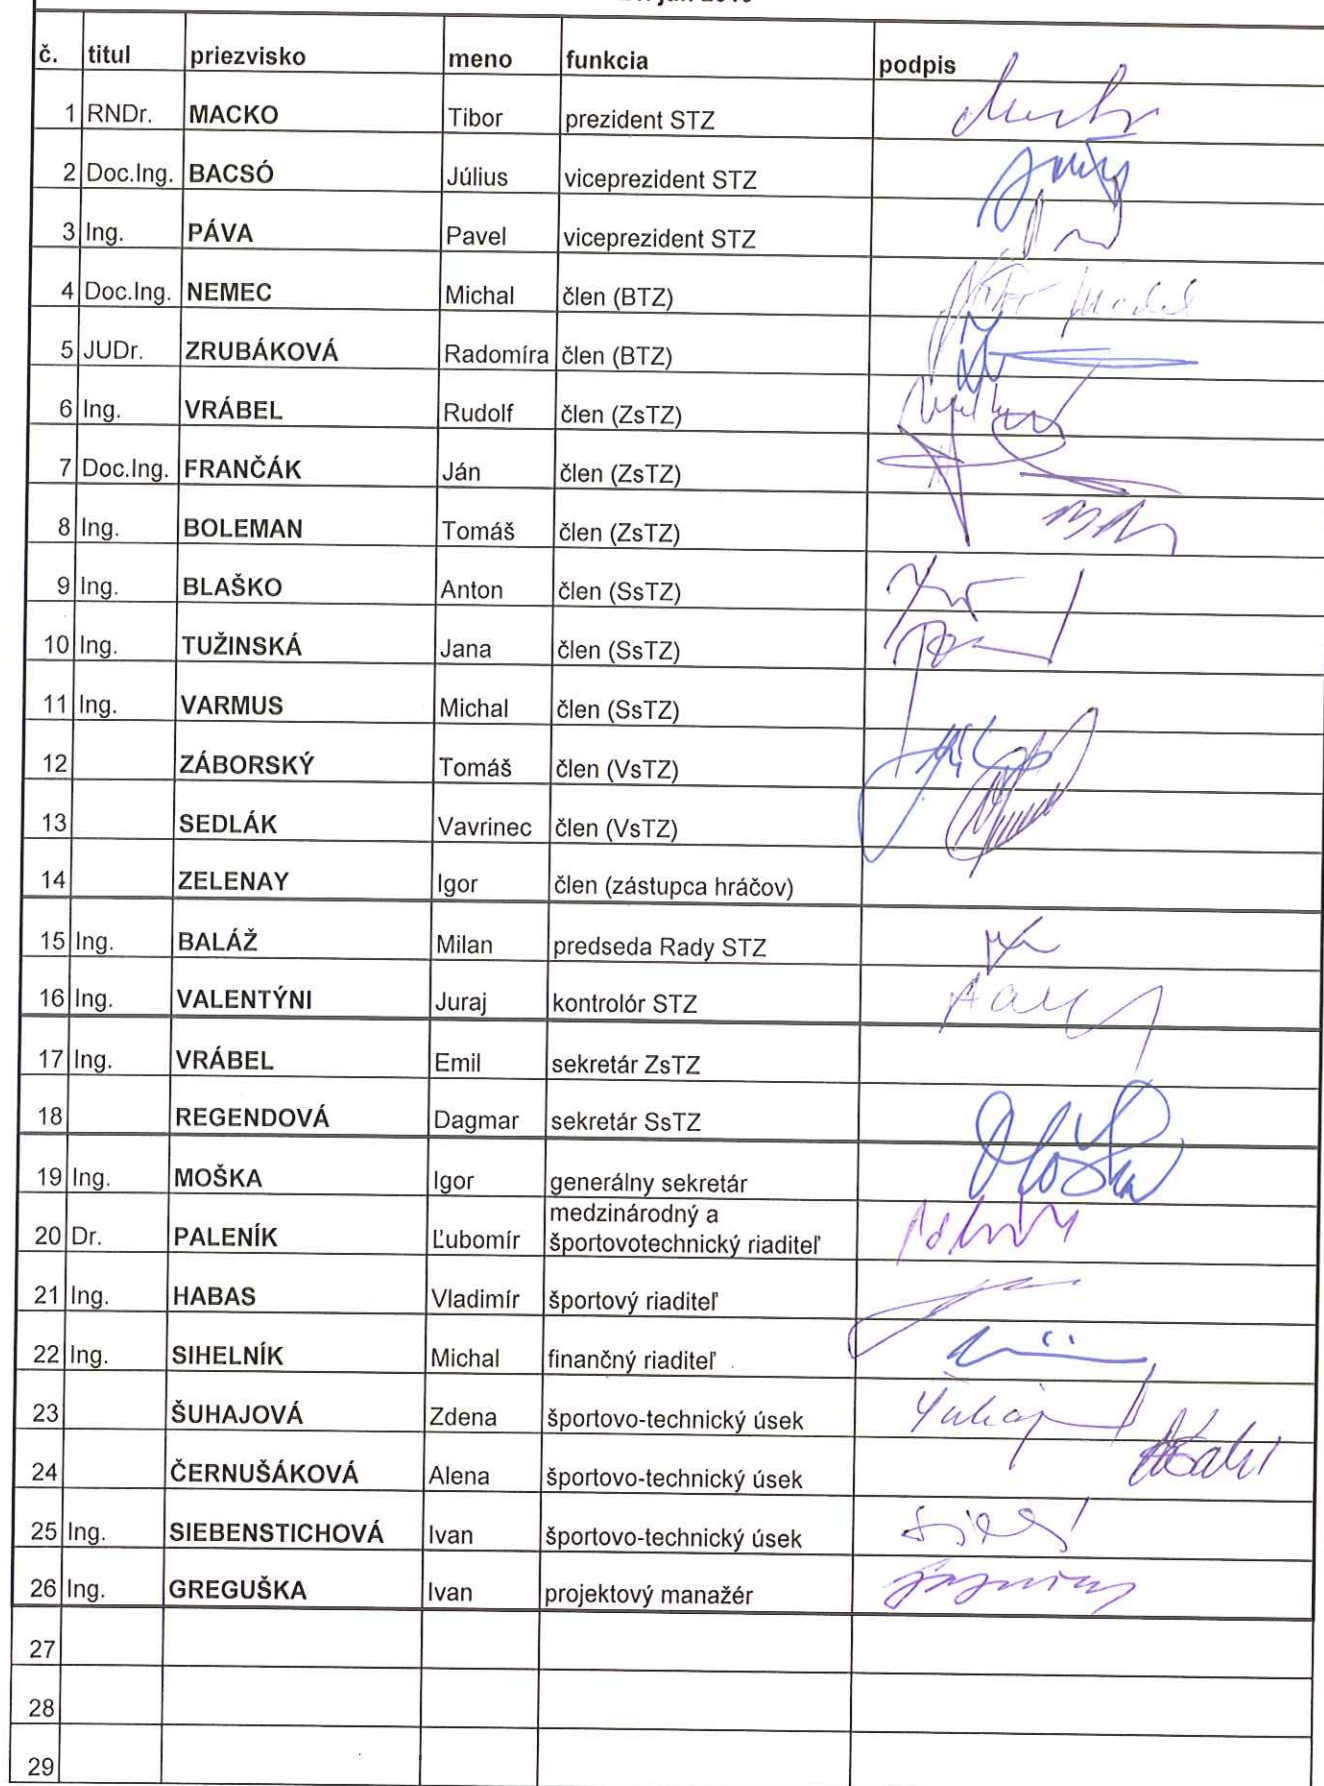 č. titul priezvisko meno funkcia podpis
1 RNDr. MACKO Tibor prezident STZ
2 Doc.Ing. BACSÓ Július viceprezident STZ
3 Ing. PÁVA Pavel viceprezident STZ
4 Doc.Ing. NEMEC Michal člen (BTZ)
5 JUDr. ZRUBÁKOVÁ Radomíra člen (BTZ)
6 Ing. VRÁBEL Rudolf člen (ZsTZ)
7 Doc.Ing. FRANČÁK Ján člen (ZsTZ)
8 Ing. BOLEMAN Tomáš člen (ZsTZ)
9 Ing. BLAŠKO Anton člen (SsTZ)
10 Ing. TUŽINSKÁ Jana člen (SsTZ)
11 Ing. VARMUS Michal člen (SsTZ)
12 ZÁBORSKÝ Tomáš člen (VsTZ)
13 SEDLÁK Vavrinec člen (VsTZ)
14 ZELENAY Igor člen (zástupca hráčov)
15 Ing. BALÁŽ Milan predseda Rady STZ
16 Ing. VALENTÝNI Juraj kontrolór STZ
17 Ing. VRÁBEL Emil sekretár ZsTZ
18 REGENDOVÁ Dagmar sekretár SsTZ
19 Ing. MOŠKA Igor generálny sekretár Moška
20 Dr. PALENÍK Ľubomír medzinárodný a
športovotechnický riaditeľ
21 Ing. HABAS Vladimír športový riaditeľ
22 Ing. SIHELNÍK Michal finančný riaditeľ
23 ŠUHAJOVÁ Zdena športovo-technický úsek
24 ČERNUŠÁKOVÁ Alena športovo-technický úsek
25 Ing. SIEBENSTICHOVÁ Ivan športovo-technický úsek
26 Ing. GREGUŠKA Ivan projektový manažér
27
28
29